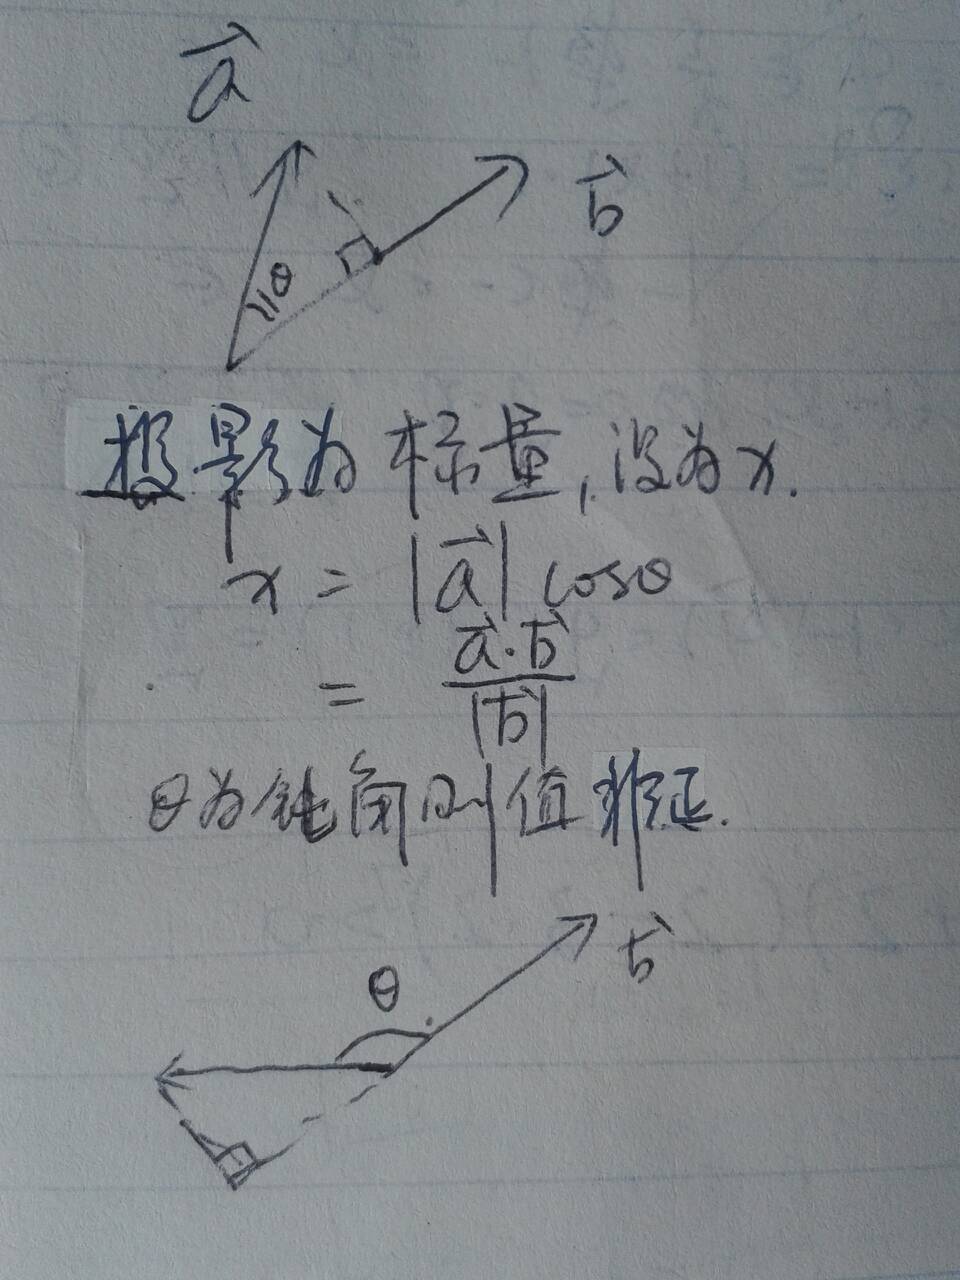 a⃗
b⃗
θ
投影为标量,设为x.
x = |a⃗| cosθ
= a⃗·b⃗ / |b⃗|
θ为钝角则值非正.
θ
b⃗